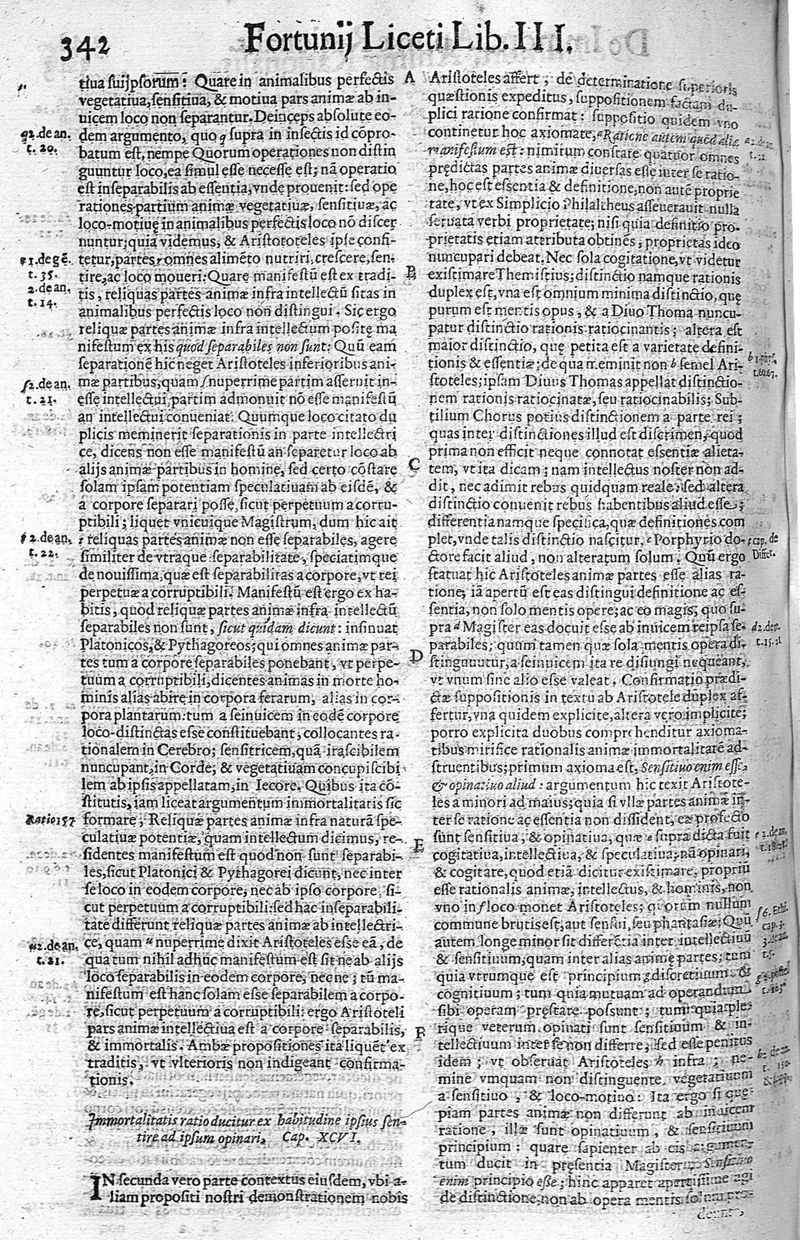 342
Fortunij Liceti Lib. III.
tiua suijpsorum: Quare in animalibus perfectis
vegetatiua, sensitiua, & motiua pars animæ ab in-
uicem loco non separantur. Deinceps absolute eo-
dem argumento, quo supra in insectis id cōpro-
batum est, nempe Quorum operationes non distin
guuntur loco, ea simul esse necesse est; nā operatio
est inseparabilis ab essentia, vnde prouenit: sed ope
rationes partium animæ vegetatiuæ, sensitiuæ, ac
loco-motiuę in animalibus perfectis loco nō discer
nuntur; quia videmus, & Aristoteles ipse confi-
tetur, partes omnes alimēto nutriri, crescere, sen-
tire, ac loco moueri: Quare manifestū est ex tradi-
tis, reliquas partes animæ infra intellectū sitas in
animalibus perfectis loco non distingui. Sic ergo
reliquæ partes animæ infra intellectum positę ma
nifestum ex his quod separabiles non sunt: Quū eam
separationē hic neget Aristoteles inferioribus ani-
mæ partibus, quam nuperrime partim asseruit in-
esse intellectui, partim admonuit nō esse manifestū
an intellectui conueniat. Quumque loco citato du
plicis meminerit separationis in parte intellectri
ce, dicens non esse manifestū an separetur loco ab
alijs animæ partibus in homine, sed certo cōstare
solam ipsam potentiam speculatiuam ab eisdē, &
a corpore separari posse, sicut perpetuum a corru-
ptibili; liquet vnicuique Magistrum, dum hic ait
reliquas partes animæ non esse separabiles, agere
similiter de vtraque separabilitate, speciatimque
de nouissima, quæ est separabilitas a corpore, vt rei
perpetuæ a corruptibili. Manifestū est ergo ex ha-
bitis, quod reliquæ partes animæ infra intellectū
separabiles non sunt, sicut quidam dicunt: insinuat
Platonicos, & Pythagoreos; qui omnes animæ par-
tes tum a corpore separabiles ponebant, vt perpe-
tuum a corruptibili, dicentes animas in morte ho-
minis alias abire in corpora ferarum, alias in cor-
pora plantarum: tum a seinuicem in eodē corpore
loco-distinctas esse constituebant, collocantes ra-
tionalem in Cerebro; sensitricem, quā irascibilem
nuncupant, in Corde; & vegetatiuam concupiscibi
lem ab ipsis appellatam, in Iecore. Quibus ita cō-
stitutis, iam liceat argumentum immortalitatis sic
formare; Reliquæ partes animæ infra naturā spe-
culatiuæ potentiæ, quam intellectum dicimus, re-
sidentes manifestum est quod non sunt separabi-
les, sicut Platonici & Pythagorei dicunt, nec inter
se loco in eodem corpore, nec ab ipso corpore, si-
cut perpetuum a corruptibili: sed hac inseparabili-
tate differunt reliquæ partes animæ ab intellectri-
ce, quam nuperrime dixit Aristoteles esse eā, de
qua tum nihil adhuc manifestum est sit ne ab alijs
loco separabilis in eodem corpore, necne; tū ma-
nifestum est hanc solam esse separabilem a corpo-
re, sicut perpetuum a corruptibili: ergo Aristoteli
pars animæ intellectiua est a corpore separabilis,
& immortalis. Ambæ propositiones ita liquēt ex
traditis, vt vlterioris non indigeant confirma-
tionis.
Immortalitatis ratio ducitur ex habitudine ipsius sen-
tire ad ipsum opinari. Cap. XCVI.
IN secunda vero parte contextus eiusdem, vbi a-
liam propositi nostri demonstrationem nobis
q 2. de an.
t. 20.
t. 35.
2. de an.
t. 14.
f 2. de an.
t. 21.
2. de an.
t. 22.
Ratio 157
2. de an.
t. 21.
A
B
C
D
E
F
Aristoteles affert; de determinatione superioris
quæstionis expeditus, suppositionem factam du-
plici ratione confirmat: suppositio quidem vno
continetur hoc axiomate, Ratione autem quod aliæ
manifestum est: nimirum constare quatuor omnes
prędictas partes animæ diuersas esse inter se ratio-
ne, hoc est essentia & definitione; non autē proprie
tate, vt ex Simplicio Philaltheus asseuerauit nulla
seruata verbi proprietate; nisi quia definitio pro-
prietatis etiam attributa obtinēs, proprietas ideo
nuncupari debeat. Nec sola cogitatione, vt videtur
existimare Themistius; distinctio namque rationis
duplex est, vna est omnium minima distinctio, quę
purum est mentis opus, & a Diuo Thoma nuncu-
patur distinctio rationis ratiocinantis; altera est
maior distinctio, quę petita est a varietate defini-
tionis & essentiæ; de qua meminit non semel Ari-
stoteles; ipsam Diuus Thomas appellat distinctio-
nem rationis ratiocinatæ, seu ratiocinabilis; Sub-
tilium Chorus potius distinctionem a parte rei;
quas inter distinctiones illud est discrimen, quod
prima non efficit neque connotat essentiæ alieta-
tem, vt ita dicam; nam intellectus noster non ad-
dit, nec adimit rebus quidquam reale; sed altera
distinctio conuenit rebus habentibus aliud esse;
differentia namque specifica, quæ definitiones com
plet, vnde talis distinctio nascitur, Porphyrio do-
ctore facit aliud, non alteratum solum. Quū ergo
statuat hic Aristoteles animæ partes esse alias ra-
tione, iā apertū est eas distingui definitione ac es-
sentia, non solo mentis opere; ac eo magis, quo su-
pra Magister eas docuit esse ab inuicem reipsa se-
parabiles; quum tamen quæ sola mentis opera di-
stinguuntur, a seinuicem ita re disiungi nequeant,
vt vnum sine alio esse valeat. Confirmatio prædi-
ctæ suppositionis in textu ab Aristotele duplex af-
fertur, vna quidem explicite, altera vero implicite;
porro explicita duobus comprehenditur axioma-
tibus mirifice rationalis animæ immortalitatē ad-
struentibus; primum axioma est, Sensitiuo enim esse,
& opinatiuo aliud: argumentum hic texit Aristote-
les a minori ad maius; quia si vllæ partes animæ in-
ter se ratione ac essentia non dissident, ex profecto
sunt sensitiua, & opinatiua, quæ supra dicta fuit
cogitatiua, intellectiua, & speculatiua; nā opinari,
& cogitare, quod etiā dicitur existimare, propriū
esse rationalis animæ, intellectus, & hominis, non
vno in loco monet Aristoteles; quorum nullum
commune brutis est, aut sensui, seu phantasiæ; Quū
autem longe minor sit differētia inter intellectiuū
& sensitiuū, quam inter alias animę partes; tum
quia vtrumque est principium discretiuum &
cognitiuum; tum quia mutuam ad operandum
sibi operam præstare possunt; tum quia ple-
rique veterum opinati sunt sensitiuum & in-
tellectiuum inter se non differre, sed esse penitus
idem; vt obseruat Aristoteles infra; ne-
mine vmquam non distinguente vegetatiuum
a sensitiuo, & loco-motiuo: Ita ergo si quę-
piam partes animæ non differunt ab inuicem
ratione, illæ sunt opinatiuum, & sensitiuum
principium: quare sapienter ab eis argumen-
tum ducit in præsentia Magister. Sensitiuo
enim principio esse; hinc apparet apertissime agi
de distinctione, non ab opera mentis solum pro-